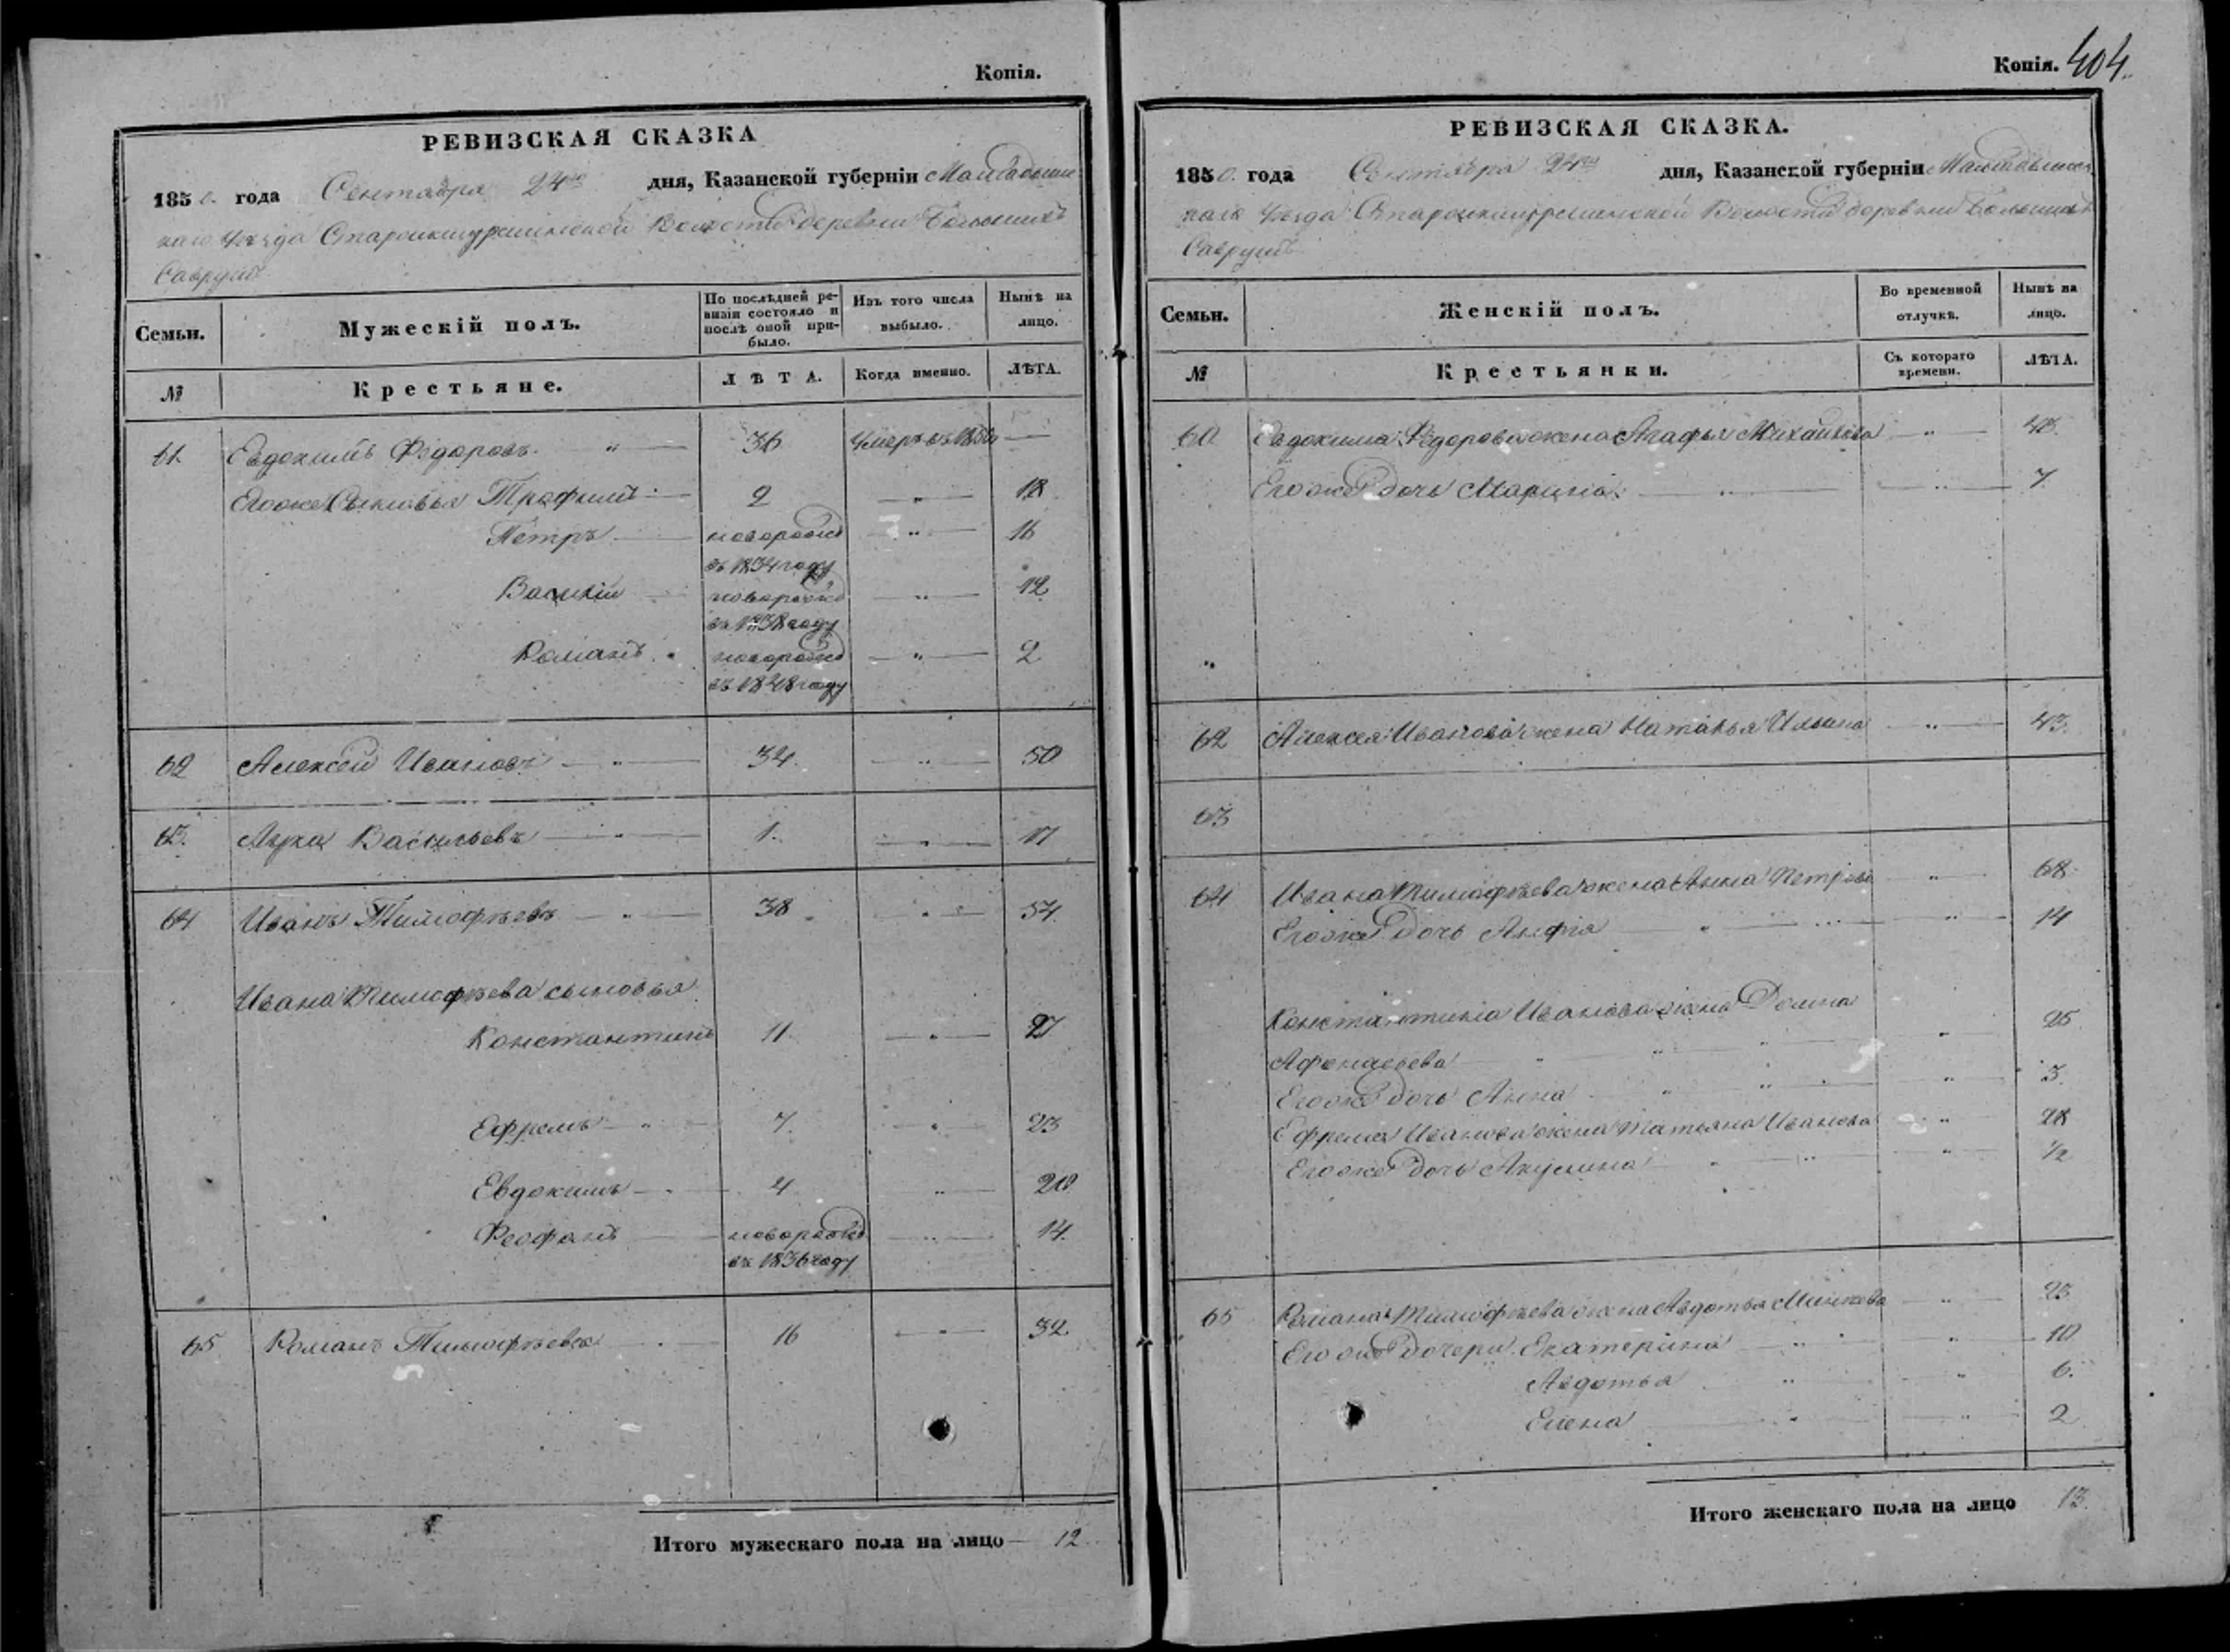 Копія.
РЕВИЗСКАЯ СКАЗКА
1850. года Сентября 24го дня, Казанской губерніи Мамадышс
каго Уѣзда Волости деревни Большихъ
Саврушъ
Семьи. Мужескій полъ. По послѣдней ре- Изъ того числа Нынѣ на
визіи состояло и выбыло. лицо.
послѣ оной при-
было.
№ Крестьяне. ЛѢТА. Когда именно. ЛѢТА.
61. Евдокимъ Федоровъ " 36 Умеръ въ —
Егоже Сыновья Трофимъ 2 " 18
Петръ новорожд " 16
въ 1834 году
Василій новорожд " 12
въ 1838 году
Романъ новорожд " 2
въ 1848 году
62 Алексей Ивановъ " 34. " 50
63. Васильевъ " 1. " 17
64 Иванъ Тимофѣевъ " 38 " 54.
Ивана Тимофѣева сыновья
Константинъ 11. " 27
Ефремъ " 7. " 23
Евдокимъ 4 " 20
Феофанъ новорожд " 14.
въ 1836 году
65 Романъ Тимофѣевъ 16 " 32
Итого мужескаго пола на лицо — 12
Копія. 404.
РЕВИЗСКАЯ СКАЗКА.
1850. года Сентября 24го дня, Казанской губерніи Мамадышс
каго Уѣзда Волости деревни Большихъ
Саврушъ
Семьи. Женскій полъ. Во временной Нынѣ на
отлучкѣ. лицо.
№ Крестьянки. Съ котораго ЛѢТА.
времени.
Евдокима Федорова жена Агафья Михайлова "
Егоже дочь Марина " " 7.
"
62 Алексея Иванова жена Наталья Ильина " 43.
63
64 Ивана Тимофѣева жена Анна Петрова " 68.
Егоже дочь " " 14
Константина Иванова жена Домна
Афонасьева " " 25
Егоже дочь Анна " " 3.
Ефрема Иванова жена Татьяна Иванова " 28
Егоже дочь Акулина " " 1/2
65 Романа Тимофѣева жена Авдотья "
Егоже дочери Екатерина " " 10
Авдотья " " 6.
Елена " " 2
Итого женскаго пола на лицо 13.